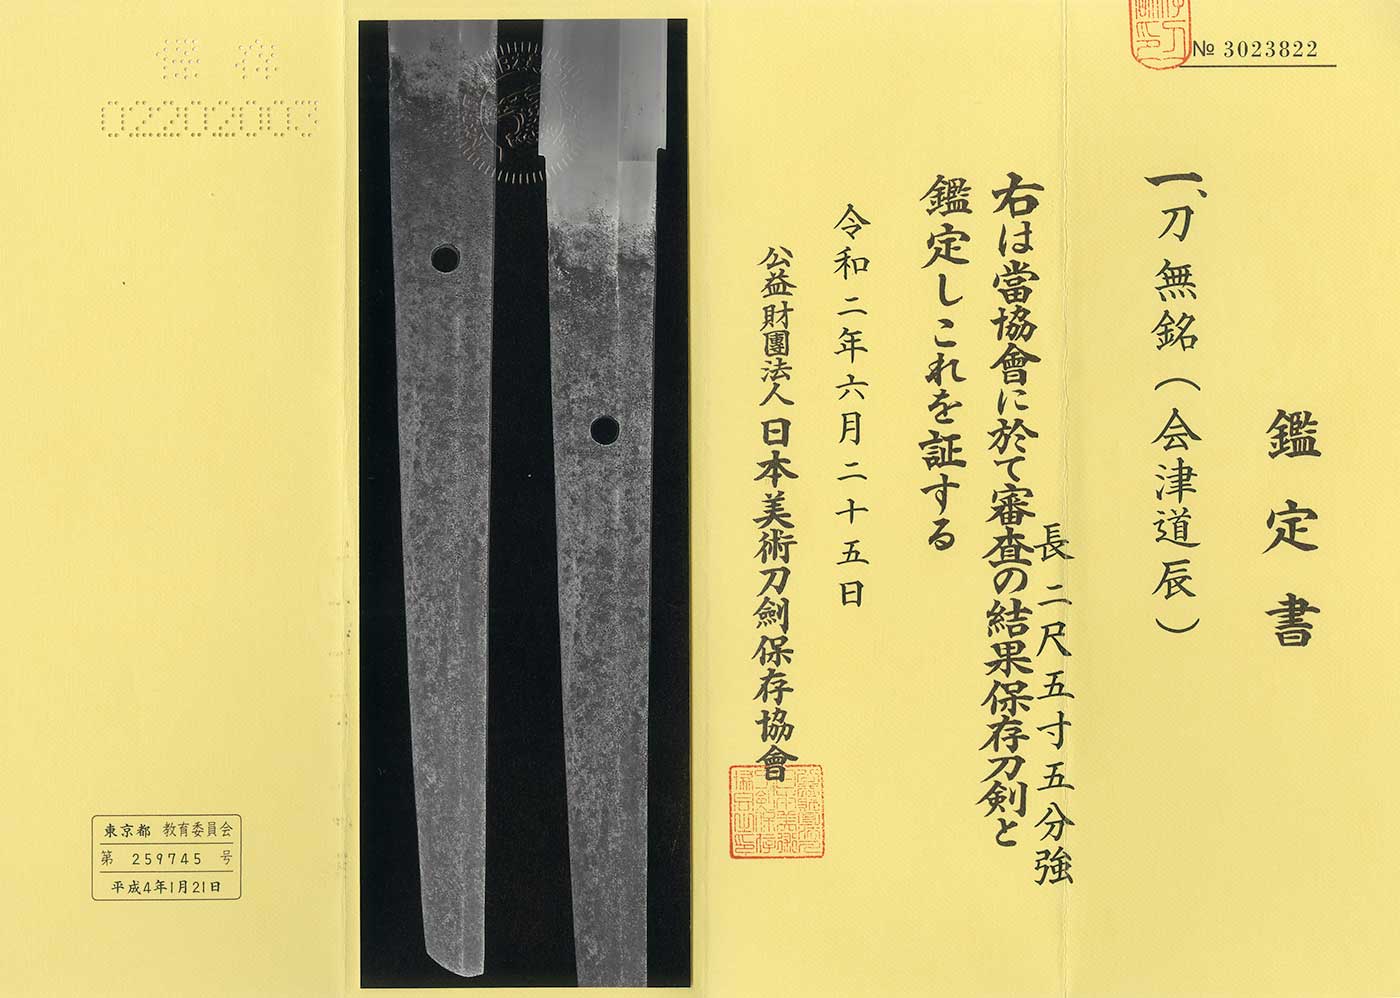 № 3023822
鑑定書
一、刀 無銘(会津道辰)
長 二尺五寸五分強
右は當協會に於て審査の結果保存刀剣と
鑑定しこれを証する
令和二年六月二十五日
公益財團法人 日本美術刀劍保存協會
保存
02202003
東京都 教育委員会
第 259745 号
平成4年1月21日